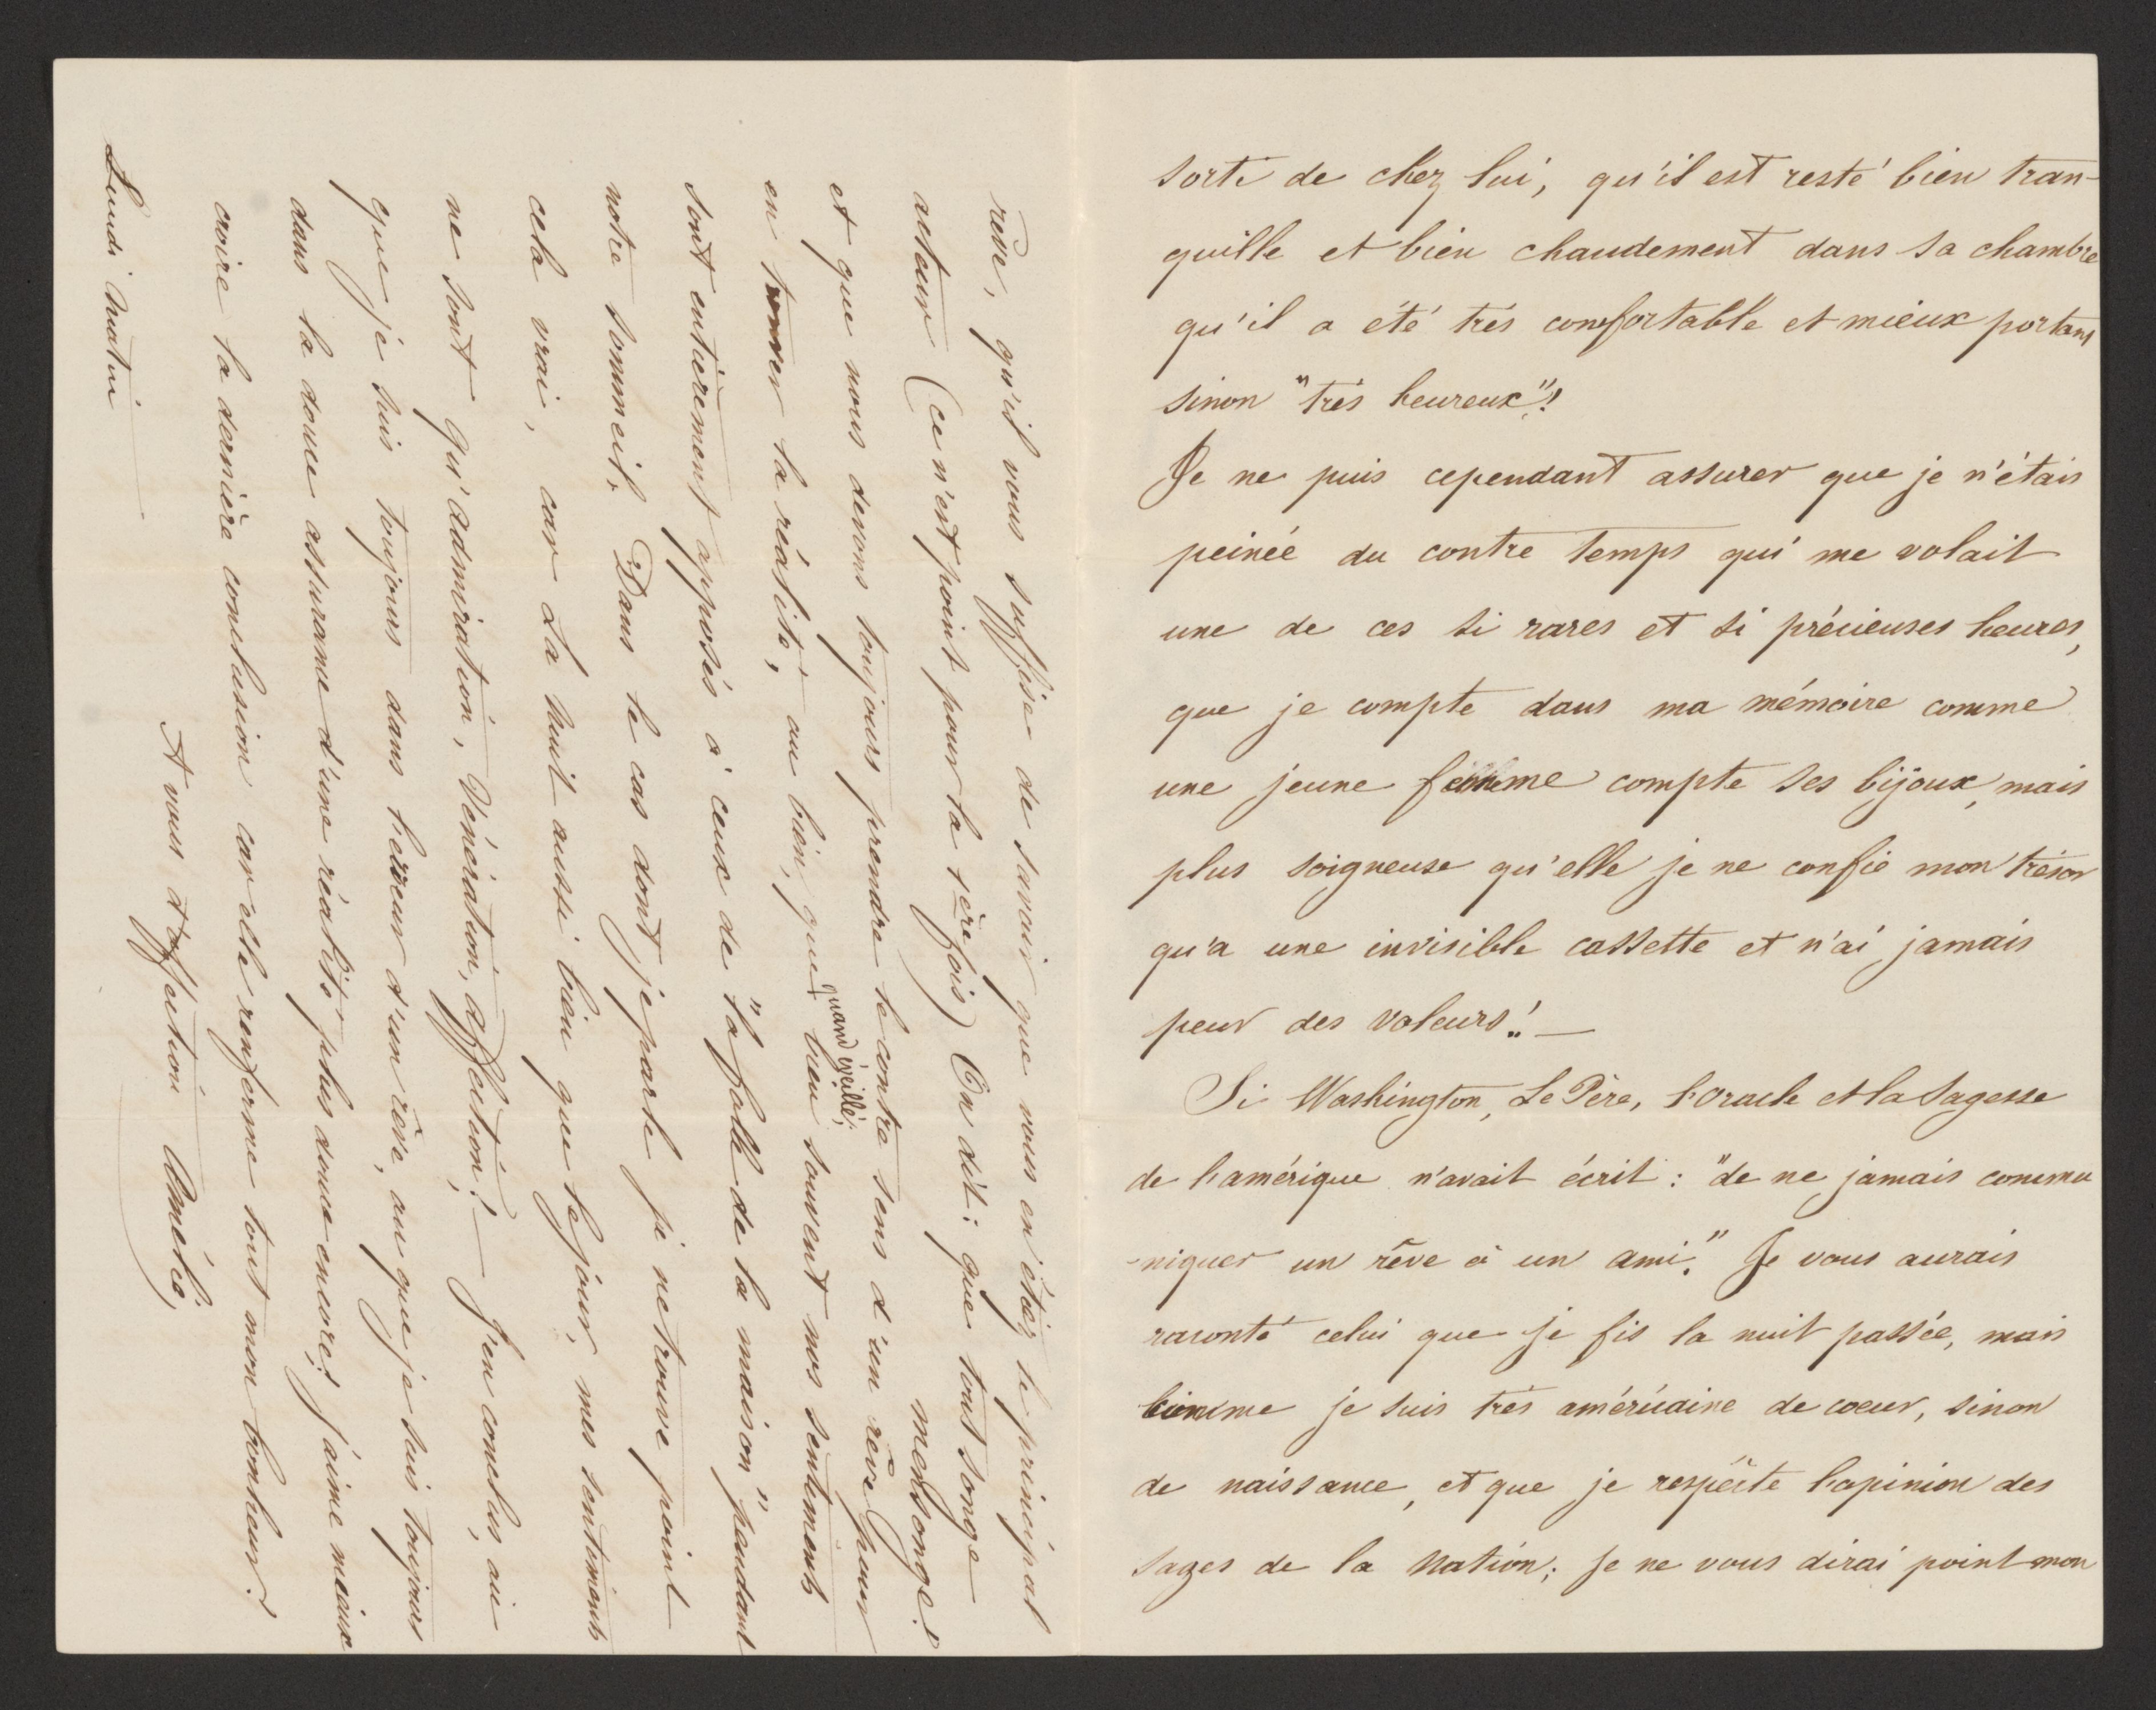 sorti de chez lui, qu'il est resté bien tran-
quille et bien chaudement dans sa chambre
qu'il a été très confortable et mieux portant
sinon "très heureux"!
Je ne puis cependant assurer que je n'étais
peinée du contre temps qui me volait
une de ces si rares et si précieuses heures,
que je compte dans ma mémoire comme
une jeune femme compte ses bijoux, mais
plus soigneuse qu'elle je ne confie mon trésor
qu'a une invisible cassette et n'ai jamais
peur des voleurs!! —
Si Washington, Le Père, l'oracle et la Sagesse
de l'amérique n'avait écrit : "de ne jamais commu
-niquer un rêve à un ami." Je vous aurais
raconté celui que je fis la nuit passée, mais
comme je suis très américaine de coeur, sinon
de naissance, et que je respècte l'opinion des
sages de la Nation; je ne vous dirai point mon
rêve, qu'il vous suffise de savoir que vous en étiez le principal
acteur (ce n'est point pour la 1ère fois) On dit: que tout songe
mensonge!
et que nous devons toujours prendre le contre sens d'un rêve pour
en trouver la réalité, ou bien, que quand éveillé; bien souvent nos sentiments
sont entièrement opposés à ceux de "la folle de la maison" pendant
notre sommeil. Dans le cas dont je parle je ne trouve point
cela vrai, car La nuit aussi bien que le jour, mes sentiments
ne sont qu'admiration, Vénération, affection! — J'en conclus, ou
que je suis toujours dans l'erreur d'un rêve, ou que je suis toujours
dans la douce assurance d'une réalité plus douce encore; j'aime mieux
croire la dernière conclusion car elle renferme tout mon bonheur.
A vous d'affection Amélie,
Lundi matin